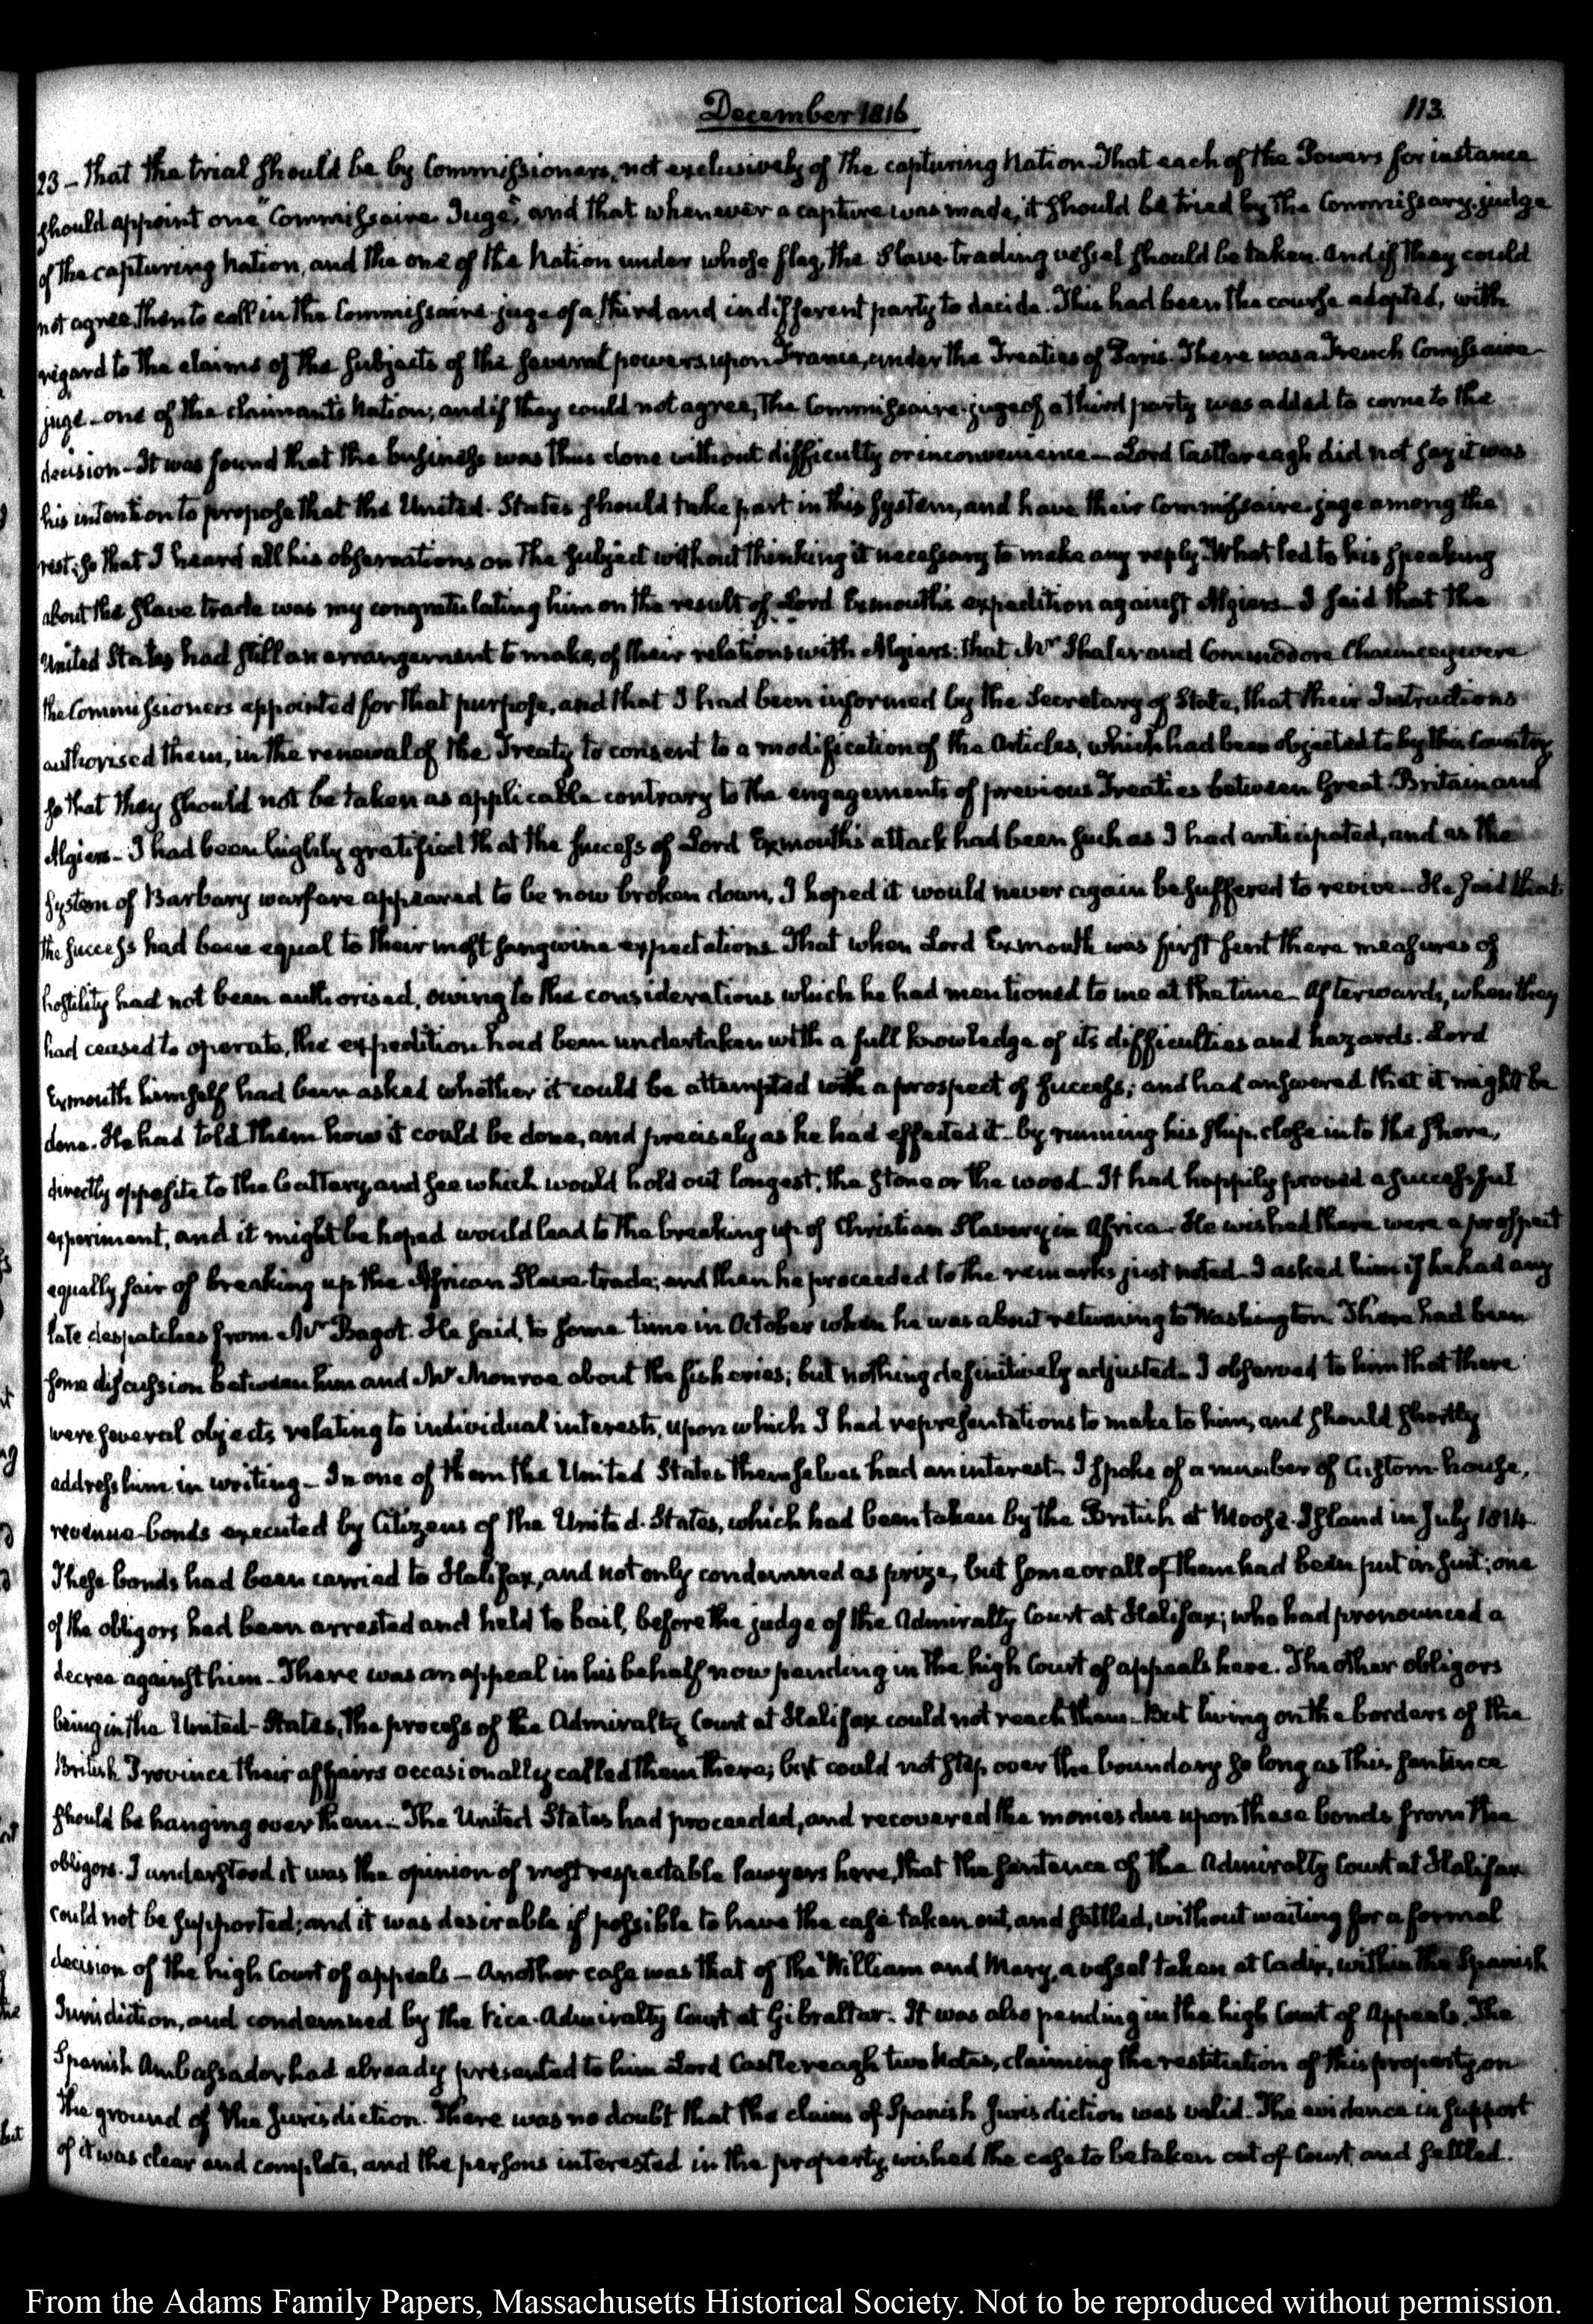 December 1816
113.
23 – that the trial should be by Commissioners, not exclusively of the capturing Nation. That each of the Powers for instance
should appoint one "Commissaire Juge", and that whenever a capture was made, it should be tried by the Commissary, judge
of the capturing Nation, and the one of the Nation under whose flag, the Slave-trading vessel should be taken. And if they could
not agree then to call in the Commissaire-juge of a third and indifferent party to decide. This had been the course adopted, with
regard to the claims of the subjects of the several powers upon France, under the Treaties of Paris. There was a French Commissaire
juge – one of the claimant's Nation; and if they could not agree, the Commissaire-juge of a third party was added to come to the
decision – It was found that the business was thus done without difficulty or inconvenience – Lord Castlereagh did not say it was
his intention to propose that the United-States should take part in this system, and have their Commissaire-juge among the
rest; so that I heard all his observations on the subject without thinking it necessary to make any reply. What led to his speaking
about the slave trade was my congratulating him on the result of Lord Exmouth's expedition against Algiers – I said that the
United States had still an arrangement to make, of their relations with Algiers: that Mr Shaler and Commodore Chauncey were
the Commissioners appointed for that purpose, and that I had been informed by the Secretary of State, that their Instructions
authorised them, in the renewal of the Treaty to consent to a modification of the Articles, which had been objected to by this Country
so that they should not be taken as applicable contrary to the engagements of previous Treaties between Great-Britain and
Algiers – I had been highly gratified that the success of Lord Exmouth's attack had been such as I had anticipated, and as the
system of Barbary warfare appeared to be now broken down, I hoped it would never again be suffered to revive – He said that
the success had been equal to their most sanguine expectations. That when Lord Exmouth was first sent there measures of
hostility had not been authorised, owing to the considerations which he had mentioned to me at the time – Afterwards, when they
had ceased to operate, the expedition had been undertaken with a full knowledge of its difficulties and hazards. Lord
Exmouth himself had been asked whether it could be attempted with a prospect of success; and had answered that it might be
done. He had told them how it could be done, and precisely as he had effected it – by running his ship close in to the shore,
directly opposite to the battery, and see which would hold out longest, the stone or the wood – It had happily proved a successful
experiment, and it might be hoped would lead to the breaking up of Christian Slavery in Africa – He wished there were a prospect
equally fair of breaking up the African Slave-trade; and then he proceeded to the remarks just noted – I asked him if he had any
late despatches from Mr Bagot. He said, to some time in October when he was about returning to Washington. There had been
some discussion between him and Mr Monroe about the fisheries; but nothing definitively adjusted – I observed to him that there
were several objects relating to individual interests, upon which I had representations to make to him, and should shortly
address him in writing – In one of them the United States themselves had an interest – I spoke of a number of Custom-house,
revenue-bonds executed by Citizens of the United-States, which had been taken by the British at Moose-Island in July 1814.
These bonds had been carried to Halifax, and not only condemned as prize, but some or all of them had been put in suit; one
of the obligors had been arrested and held to bail, before the judge of the Admiralty Court at Halifax; who had pronounced a
decree against him – There was an appeal in his behalf now pending in the high Court of appeals here. The other obligors
being in the United-States, the process of the Admiralty Court at Halifax could not reach them – But living on the borders of the
British Province their affairs occasionally called them there; but could not step over the boundary so long as this sentence
should be hanging over them – The United States had proceeded, and recovered the monies due upon these bonds from the
obligors. I understood it was the opinion of most respectable lawyers here, that the sentence of the Admiralty Court at Halifax
could not be supported; and it was desirable if possible to have the case taken out, and settled, without waiting for a formal
decision of the high Court of appeals – Another case was that of the William and Mary, a vessel taken at Cadiz, within the Spanish
Jurisdiction, and condemned by the Vice-Admiralty Court at Gibraltar. It was also pending in the high Court of Appeals. The
Spanish Ambassador had already presented to him Lord Castlereagh two Notes, claiming the restitution of this property, on
the ground of the Jurisdiction. There was no doubt that the claim of Spanish Jurisdiction was valid. The evidence in support
of it was clear and complete, and the persons interested in the property, wished the case to be taken out of Court and settled.
From the Adams Family Papers, Massachusetts Historical Society. Not to be reproduced without permission.